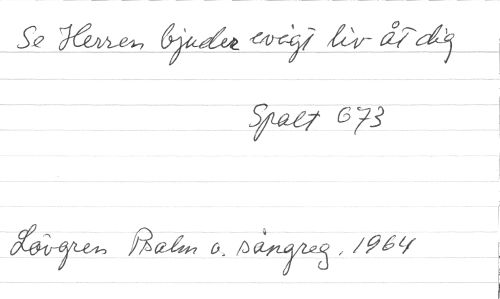 Se Herren bjuder evigt liv åt dig
Spalt 673
Lövgren Psalm o. sångreg. 1964